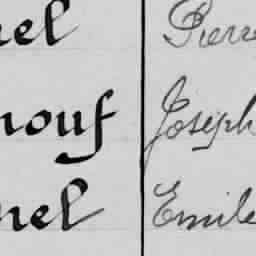 nel Pierre
nouf Joseph
nel Emile